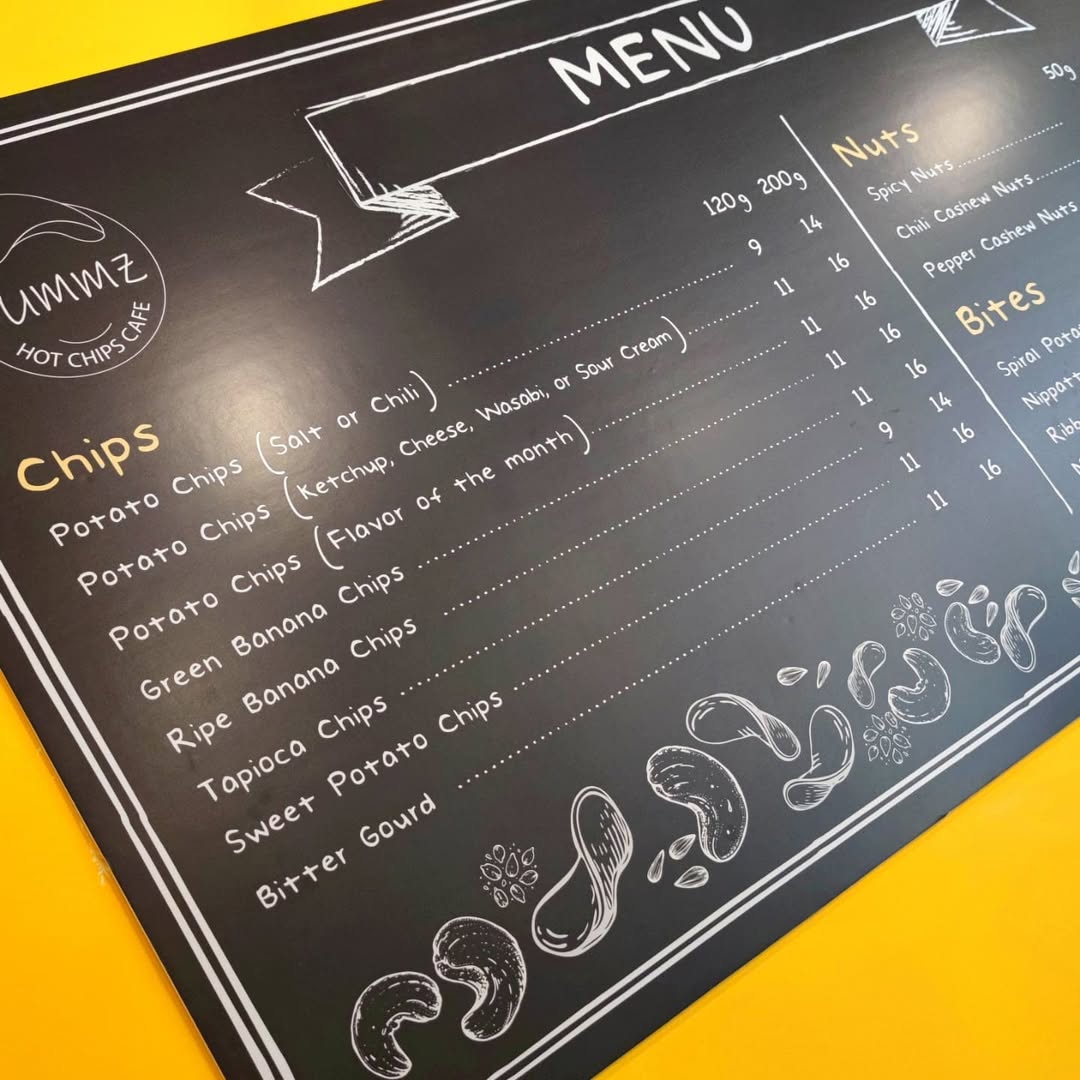 MENU
ummz
HOT CHIPS CAFE
Chips
120g 200g
Potato Chips (Salt or Chili) 9 14
Potato Chips (Ketchup, Cheese, Wasabi, or Sour Cream) 11 16
Potato Chips (Flavor of the month) 11 16
Green Banana Chips 11 16
Ripe Banana Chips 11 16
Tapioca Chips 9 14
Sweet Potato Chips 11 16
Bitter Gourd 11 16
Nuts
50g
Spicy Nuts
Chili Cashew Nuts
Pepper Cashew Nuts
Bites
Spiral